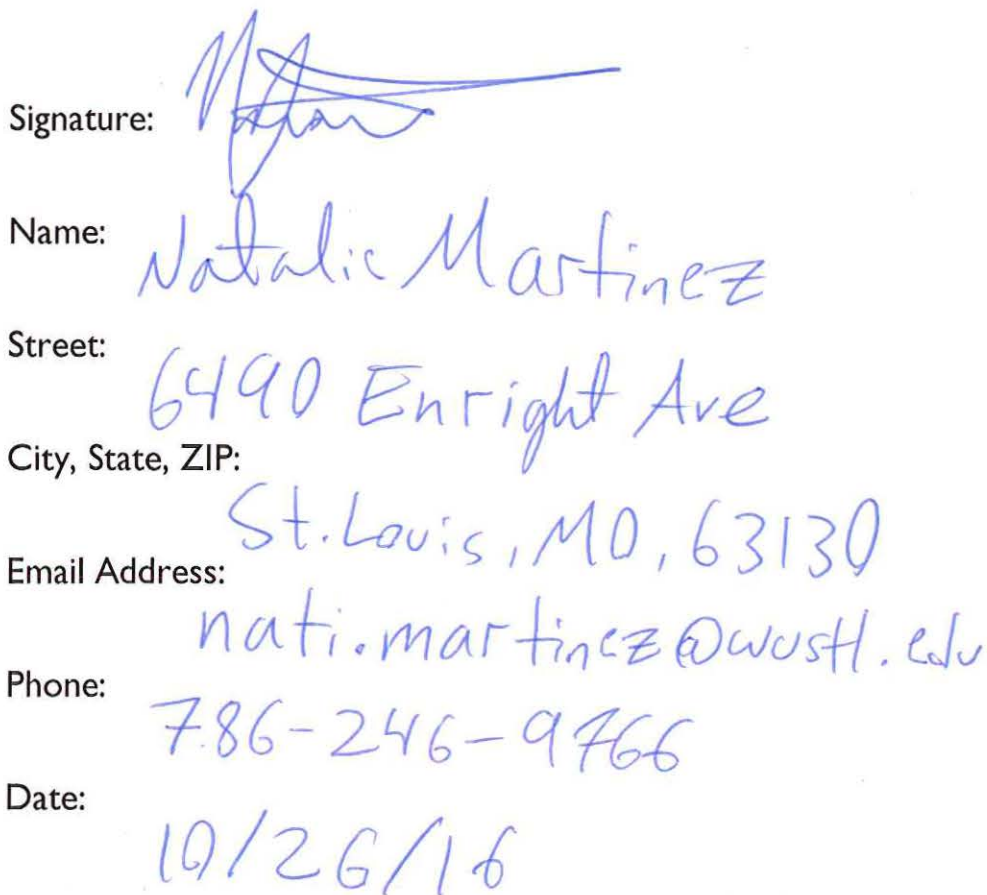 Signature:
Name: Natalie Martinez
Street: 6490 Enright Ave
City, State, ZIP:
St. Louis, MO, 63130
Email Address:
nati.martinez@wustl.edu
Phone: 786-246-9766
Date: 10/26/16